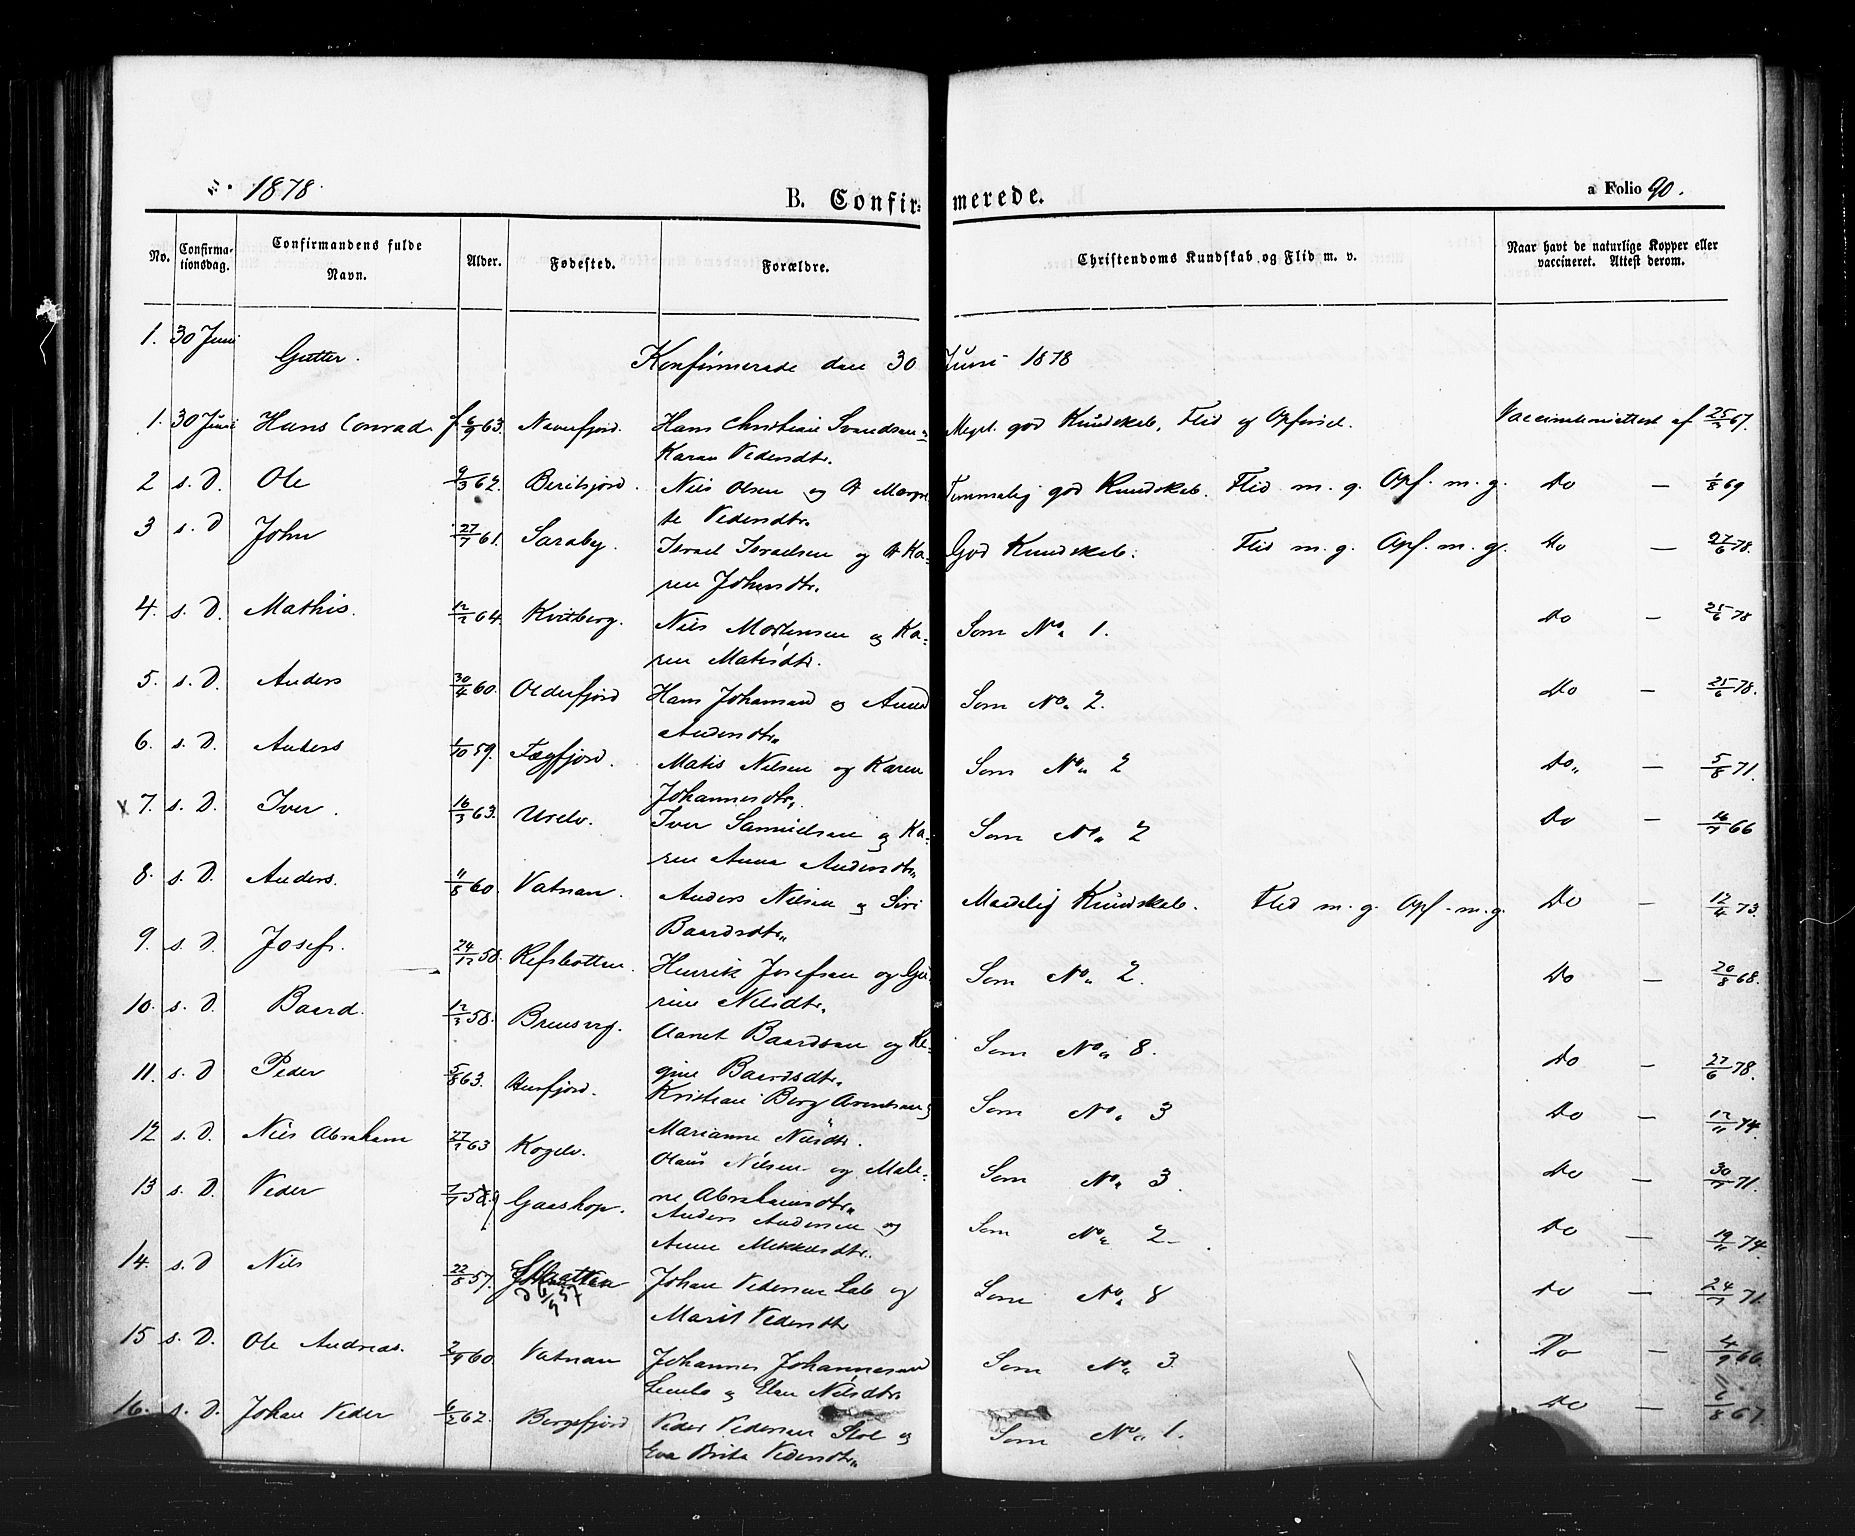 1878.
B. Confirmerede.
a Folio 90.
No.
Confirmationsdag.
Confirmandens fulde Navn.
Alder.
Fødested.
Forældre.
Christendoms Kundskab og Flid m. v.
Naar havt de naturlige Kopper eller vaccineret. Attest derom.
1. 30 Juni Gutter. Konfirmerede den 30 Juni 1878
1. 30 Juni Hans Conrad 63. Naverfjord. Hans Christian Svendsen Meget god Kundskab, Flid og Opførsel. Vaccinationsattest af 25/ 67.
Karen Pedersdtr.
2 s. D. Ole 9/3 62. Beritsjord. Nils Olsen og Margre Temmelig god Kundskab. Flid m. g. Opf. m. g. Do — 1/8 69
te Pedersdtr.
3 s. D John 27/7 61. Saraby. Israel Israelsen og Ka- God Kundskab. Flid m. g. Opf. m. g. Do — 27/6 78.
ren Johnsdtr.
4. s. D. Mathis. 12/2 64. Kvitberg. Nils Mortensen og Ka- Som No. 1. Do — 25/6 78
ren Matisdtr.
5. s. D. Anders 30/4 60. Olderfjord Hans Johansen og Anne Som No. 2. Do — 25/6 78.
Andersdtr.
6. s. D. Anders 1/10 59. Fægfjord. Matis Nilsen og Karen Som No. 2 Do — 5/8 71.
Johannesdtr.
x 7. s. D. Iver. 16/3 63. Urelv. Iver Samuelsen og Ka- Som No. 2 Do — 16/7 66
ren Anna Andersdtr.
8. s. D. Anders. 11/8 60. Vatnan. Anders Nilsen og Siri Maadelig Kundskab. Flid m. g. Opf. m. g. Do — 12/4 73.
Baardsdtr.
9. s. D. Josef. 24/12 58. Refsbotten. Henrik Josefsen og Gu- Som No. 2. Do — 20/8 68.
rine Nilsdtr.
10. s. D. Baard. 12/3 58. Brensvig. Baardsen og Re- Som No. 8. Do — 27/6 78.
gine Baardsdtr.
11. s. D Peder 5/8 63. Kristian Berg Arentsen Som No. 3 Do — 12/11 74.
Marianne Nilsdtr.
12 s. D. Nils Abraham 27/7 63 Kogelv. Olaus Nilsen og Male- Som No. 3. Do — 30/7 71.
ne Abrahamsdtr.
13 s. D. Peder Gaashop. Anders Andersen og Som No. 2 Do — 19/11 74.
Anne Mikkelsdtr.
14. s. D Nils 22/8 57. Johan Pedersen og Som No. 8 Do — 24/7 71.
6/9 57 Marit Pedersdtr
15 s. D. Ole Andreas. 2/9 60. Vatnan Johannes Johannesen Som No. 3. Do — 4/9 66.
og Elen Nilsdtr.
16. s. D. Johan Peder 6/2 62. Bergsfjord Peder Pedersen og Som No. 1. Do — 6/8 67.
Eva Brita Pedersdtr.